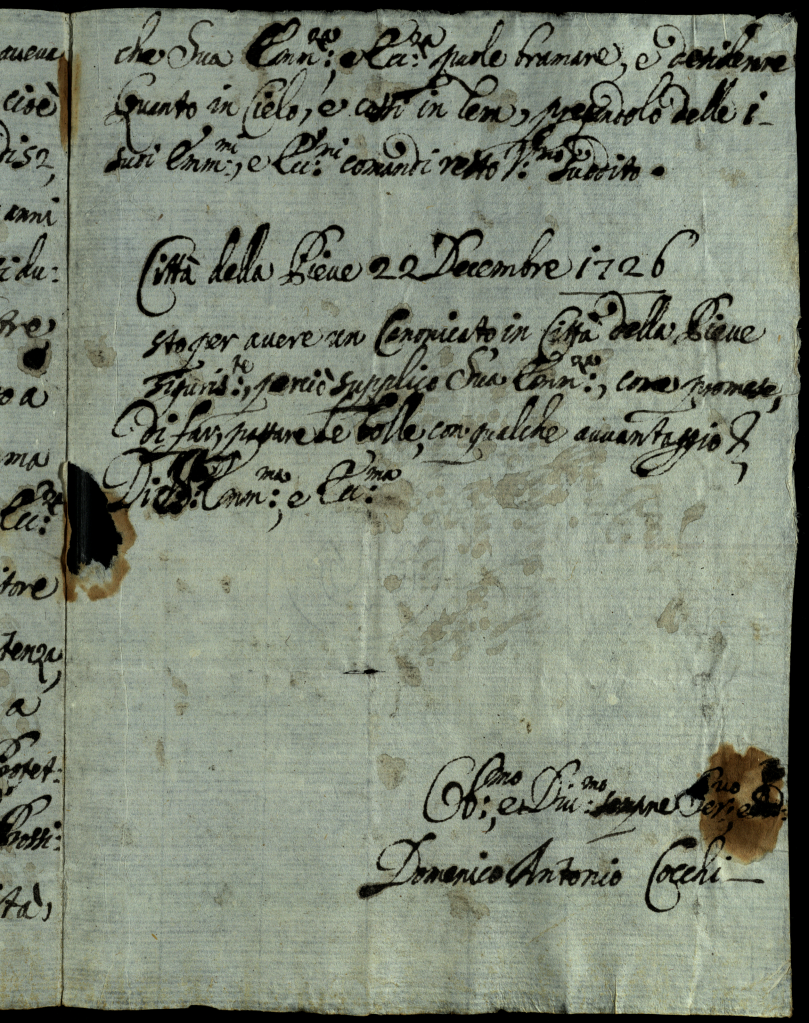 aueua
cioè
di 52,
anni
di du:
tre
to a
ma
Ecc:za
itore
tenza,
a
Protet:
Possi:
stà,
che Sua Emm:za, e Ecc:za puole bramare, e desiderare
Quanto in Cielo, e in terra, pregandolo delle i-
suoi Emm:mi, e Ecc:mi comandi resto Suddito.
Città della Pieve 22 Decembre 1726
Sto per avere un Canonicato in Città della Pieve
perciò supplico Sua Emm:za, come promase,
Di far, passare le bolle, con qualche avvantaggio &,
Di Emm:ma, e Ecc:ma
Ob:mo, et Diu:mo sempre Ser:
Domenico Antonio Cocchi